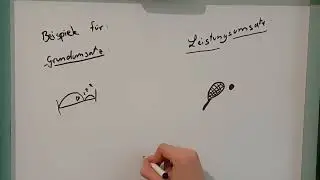 Beispiele für:
Grundumsatz
Leistungsumsatz